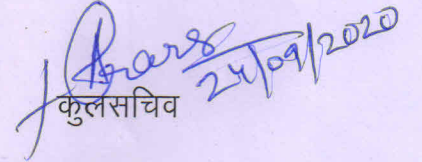 24/09/2020
कुलसचिव